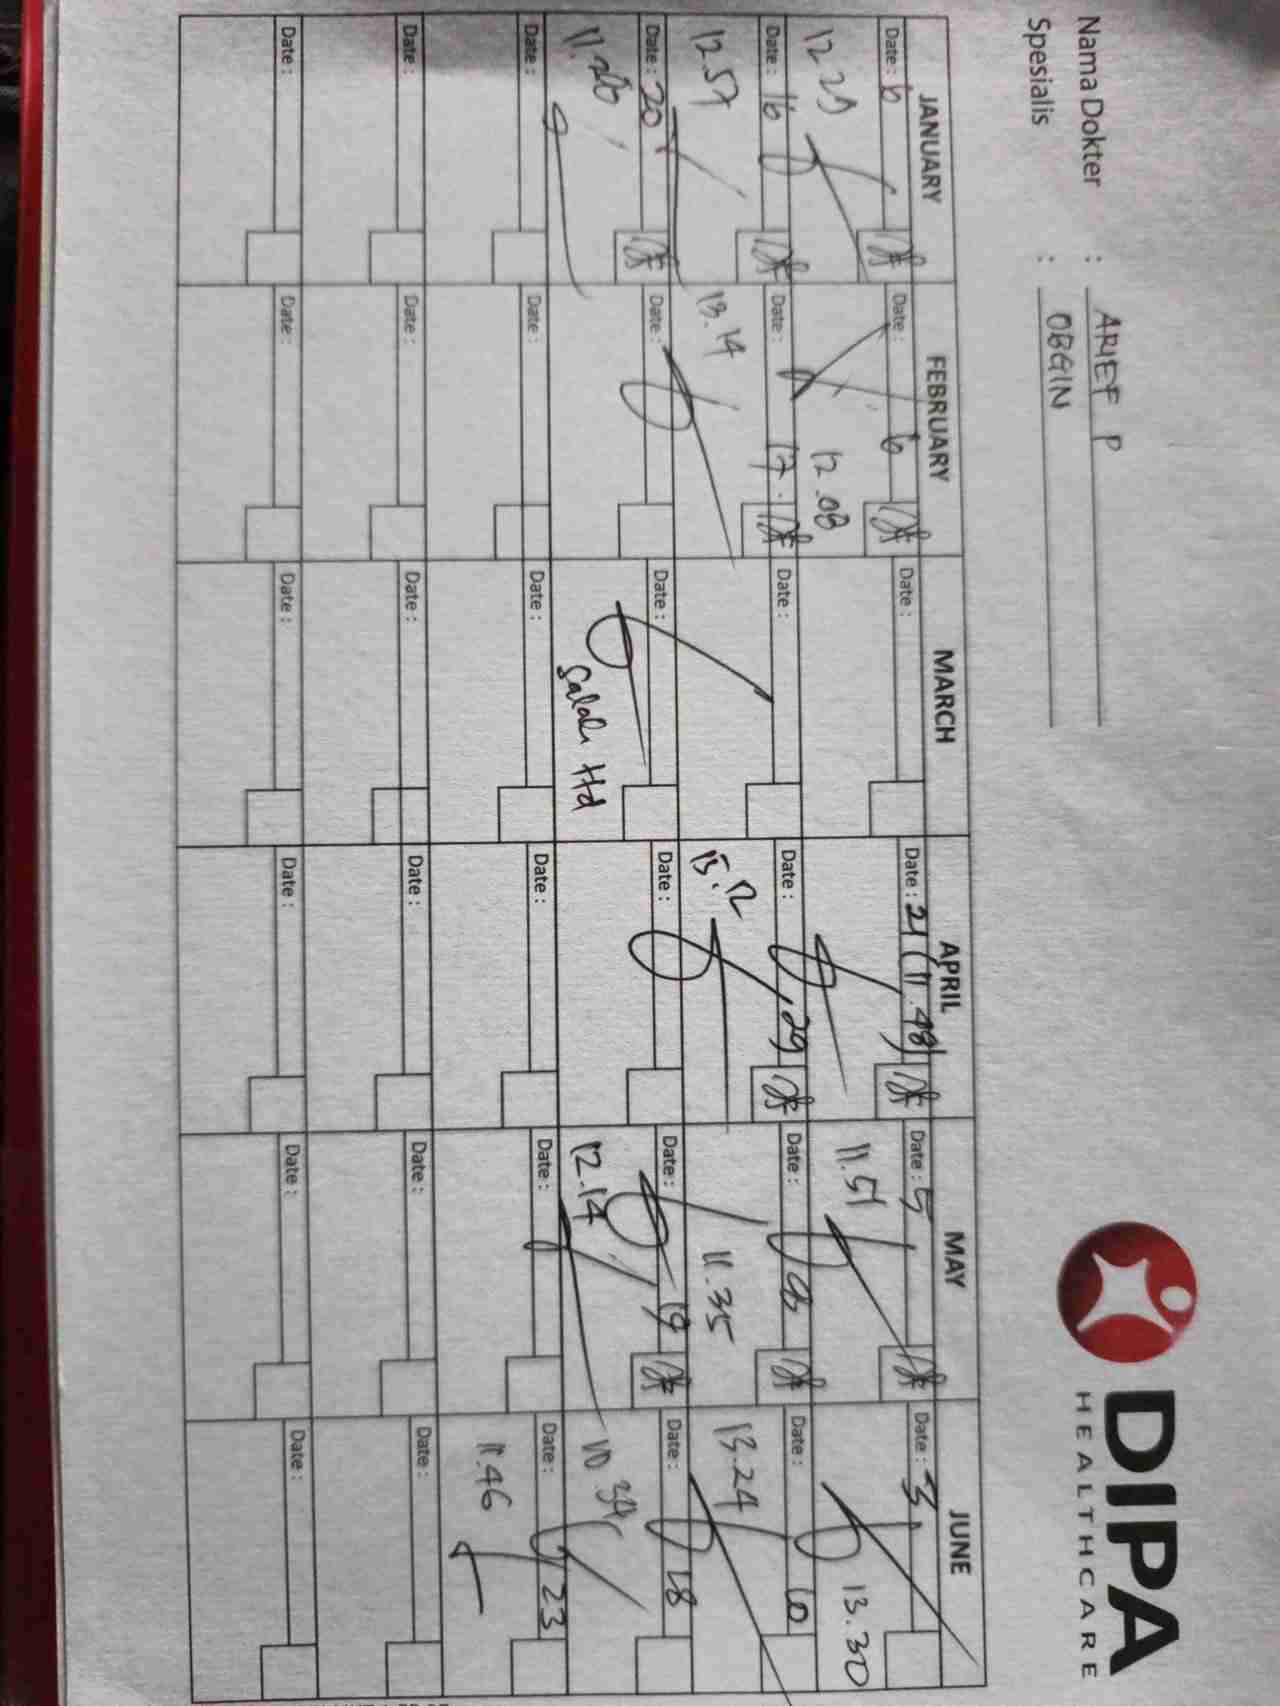 DIPA
HEALTHCARE
Nama Dokter : ARIEF P
Spesialis : OBGIN
JANUARY FEBRUARY MARCH APRIL MAY JUNE
Date : 6 Date : 6 Date : Date : 21 (11.48) Date : 5 Date : 3
12.29 12.08 11.51 13.30
Date : 16 Date : 17 Date : Date : 29 Date : Date : 10
12.57 13.14 15.12 11.35 13.24
Date : 20 Date : Date : Date : Date : 19 Date : 18
11.26 Salah Ttd 12.14 10.34
Date : Date : Date : Date : Date : Date : 23
11.46
Date : Date : Date : Date : Date : Date :
Date : Date : Date : Date : Date : Date :